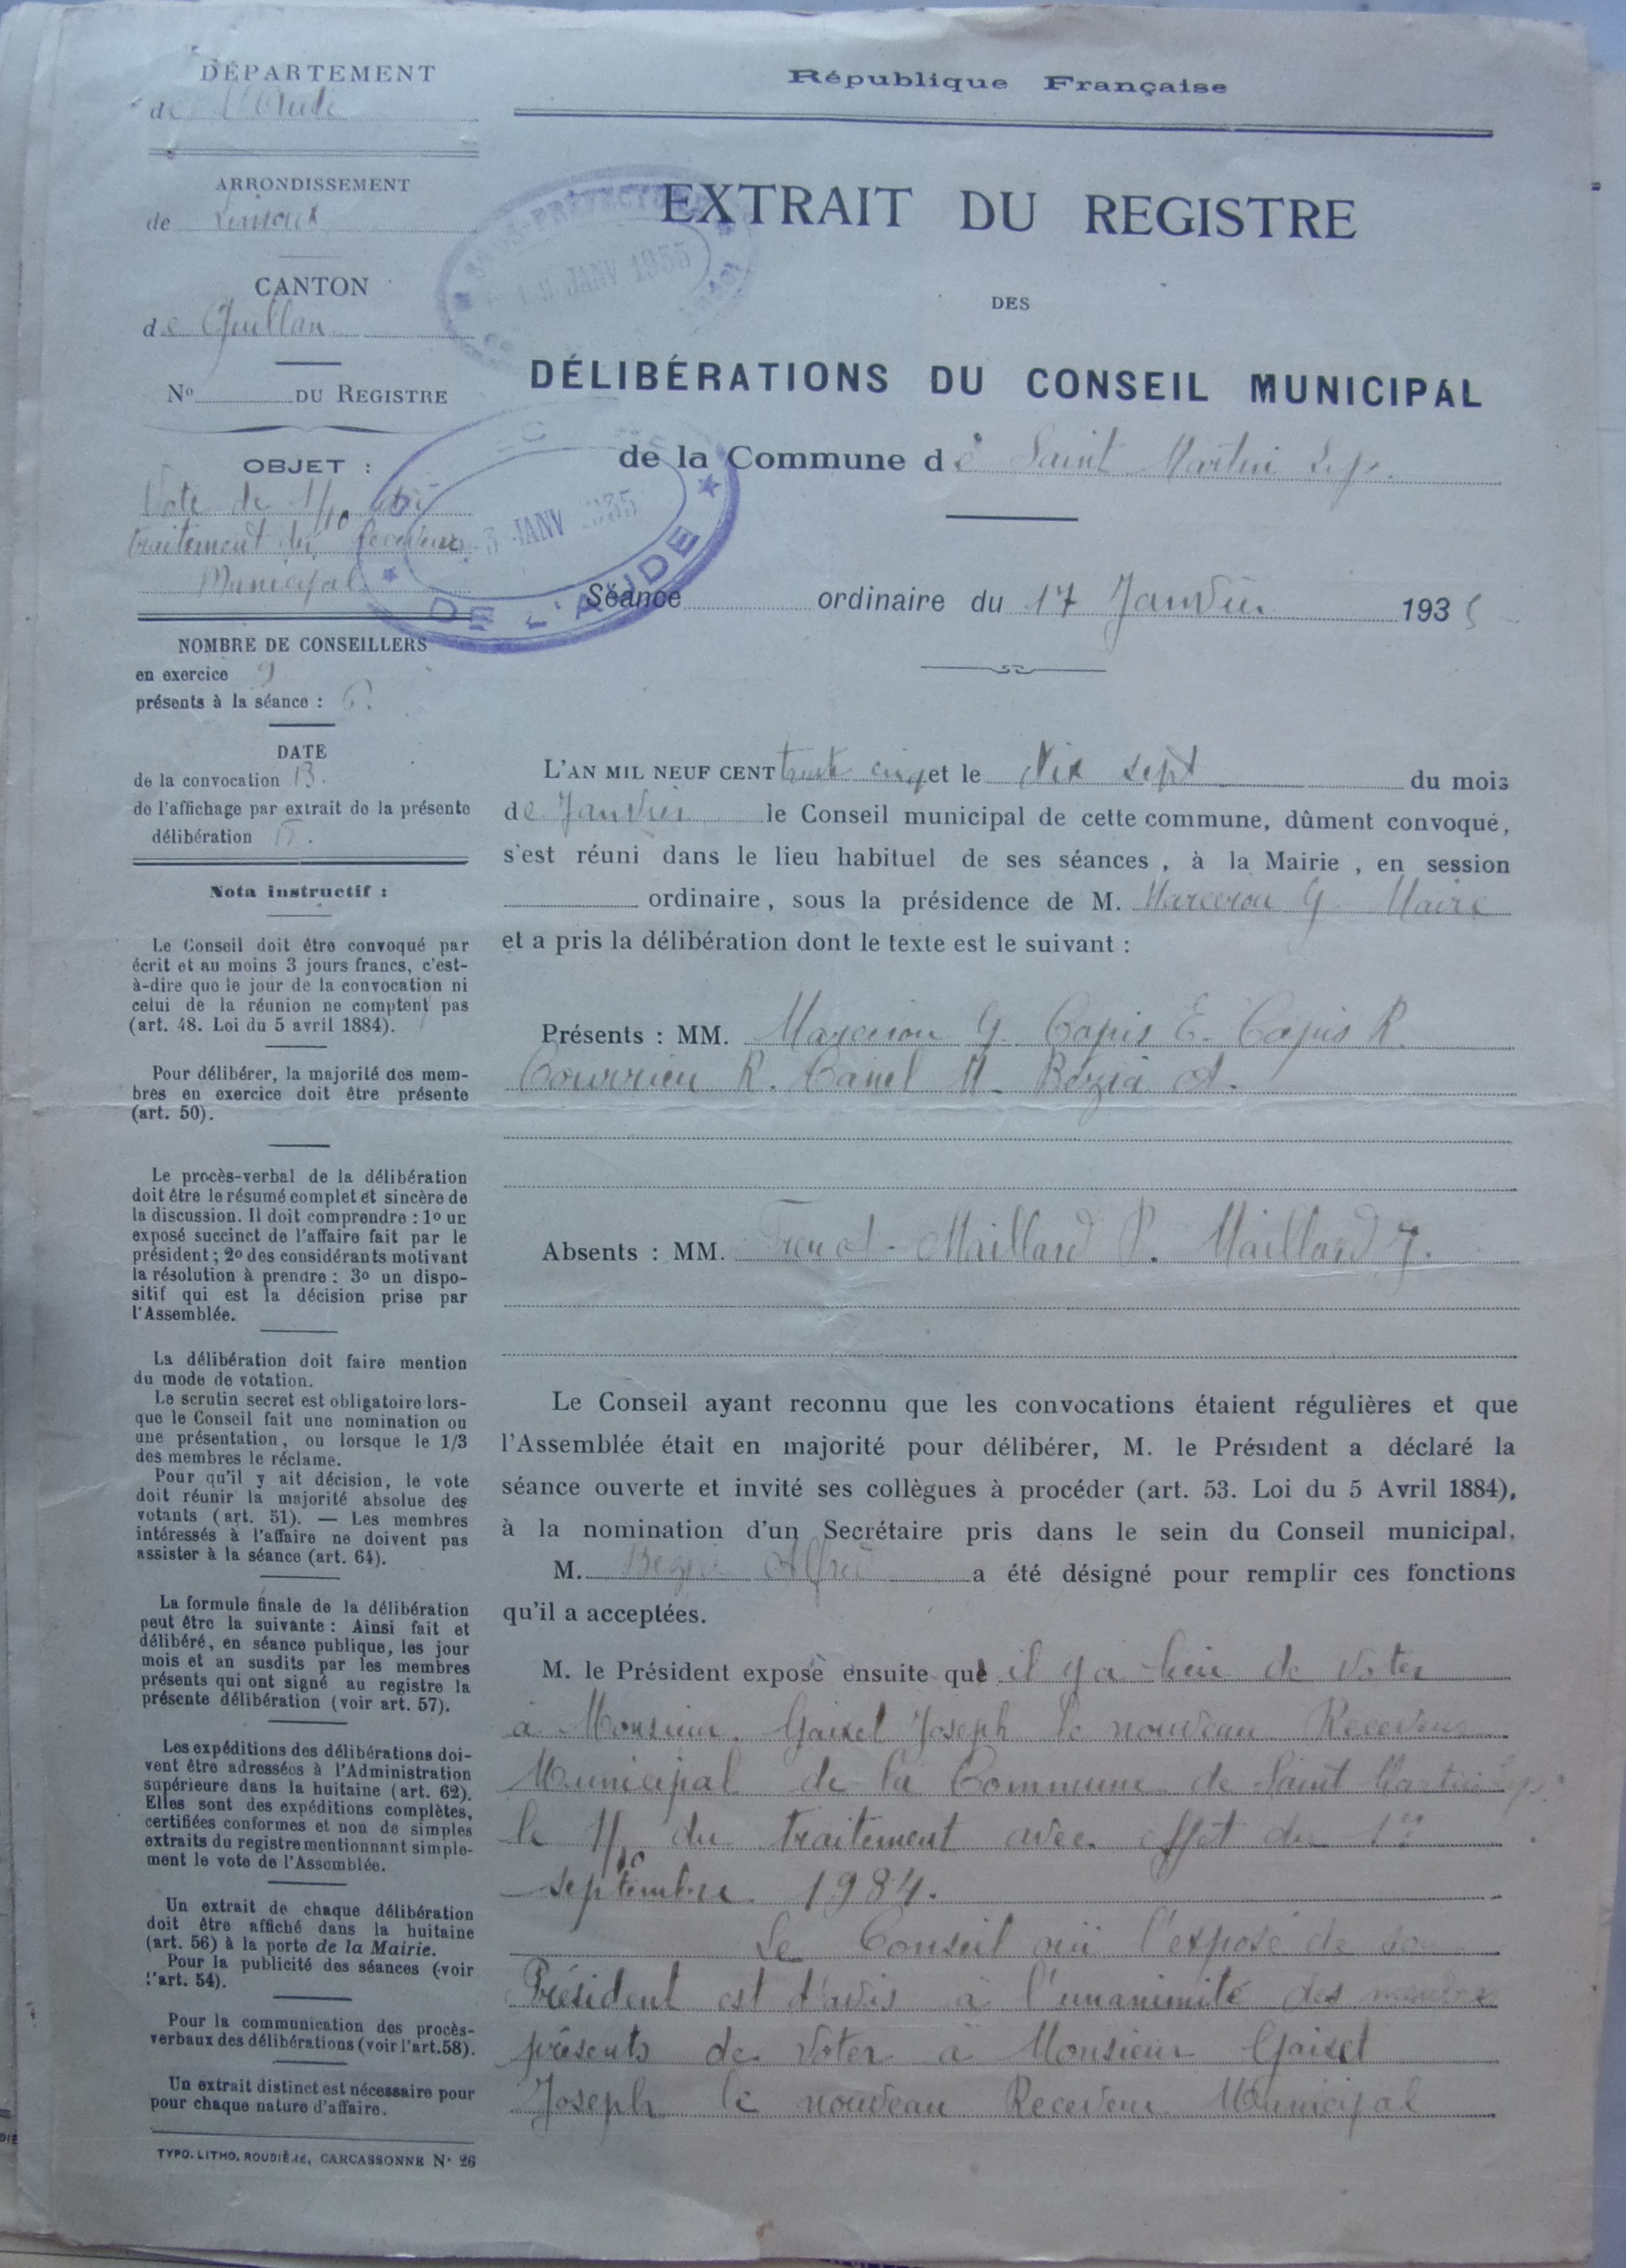 DÉPARTEMENT
de l'Aude
ARRONDISSEMENT
de Limoux
CANTON
de Quillan
No DU REGISTRE
OBJET :
Vote de 1/10 du
traitement du Receveur
Municipal
NOMBRE DE CONSEILLERS
en exercice 9
présents à la séance : 6.
DATE
de la convocation 13.
de l'affichage par extrait de la présente
délibération
Nota instructif :
Le Conseil doit être convoqué par
écrit et au moins 3 jours francs, c'est-
à-dire que le jour de la convocation ni
celui de la réunion ne comptent pas
(art. 48. Loi du 5 avril 1884).
Pour délibérer, la majorité des mem-
bres en exercice doit être présente
(art. 50).
Le procès-verbal de la délibération
doit être le résumé complet et sincère de
la discussion. Il doit comprendre : 1o un
exposé succinct de l'affaire fait par le
président ; 2o des considérants motivant
la résolution à prendre : 3o un dispo-
sitif qui est la décision prise par
l'Assemblée.
La délibération doit faire mention
du mode de votation.
Le scrutin secret est obligatoire lors-
que le Conseil fait une nomination ou
une présentation, ou lorsque le 1/3
des membres le réclame.
Pour qu'il y ait décision, le vote
doit réunir la majorité absolue des
votants (art. 51). — Les membres
intéressés à l'affaire ne doivent pas
assister à la séance (art. 64).
La formule finale de la délibération
peut être la suivante : Ainsi fait et
délibéré, en séance publique, les jour
mois et an susdits par les membres
présents qui ont signé au registre la
présente délibération (voir art. 57).
Les expéditions des délibérations doi-
vent être adressées à l'Administration
supérieure dans la huitaine (art. 62).
Elles sont des expéditions complètes,
certifiées conformes et non de simples
extraits du registre mentionnant simple-
ment le vote de l'Assemblée.
Un extrait de chaque délibération
doit être affiché dans la huitaine
(art. 56) à la porte de la Mairie.
Pour la publicité des séances (voir
l'art. 54).
Pour la communication des procès-
verbaux des délibérations (voir l'art.58).
Un extrait distinct est nécessaire pour
pour chaque nature d'affaire.
TYPO. LITHO. ROUDIÈRE, CARCASSONNE No 26
République Française
SOUS-PRÉFECTURE
19 JANV 1935
EXTRAIT DU REGISTRE
DES
DÉLIBÉRATIONS DU CONSEIL MUNICIPAL
de la Commune de Saint Martin Lys.
JANV 1935
DE L'AUDE
Séance ordinaire du 17 Janvier 1935
L'AN MIL NEUF CENT trente cinq et le Dix sept du mois
de Janvier le Conseil municipal de cette commune, dûment convoqué,
s'est réuni dans le lieu habituel de ses séances, à la Mairie, en session
ordinaire, sous la présidence de M. Marcerou G. Maire
et a pris la délibération dont le texte est le suivant :
Présents : MM. Marcerou G. Capis E. Capis R.
Courrieu R. Canel M. Bezia A.
Absents : MM. Maillard P. Maillard J.
Le Conseil ayant reconnu que les convocations étaient régulières et que
l'Assemblée était en majorité pour délibérer, M. le Président a déclaré la
séance ouverte et invité ses collègues à procéder (art. 53. Loi du 5 Avril 1884),
à la nomination d'un Secrétaire pris dans le sein du Conseil municipal.
M. Bezia Alfred a été désigné pour remplir ces fonctions
qu'il a acceptées.
M. le Président expose ensuite que il y a lieu de voter
à Monsieur. Gaixet Joseph le nouveau Receveur
Municipal de la Commune de Saint Martin Lys.
le 1/10 du traitement avec effet du 1er
septembre 1934.
Le Conseil ouï l'exposé de son
Président est d'avis à l'unanimité des membres
présents de voter à Monsieur Gaixet
Joseph le nouveau Receveur Municipal